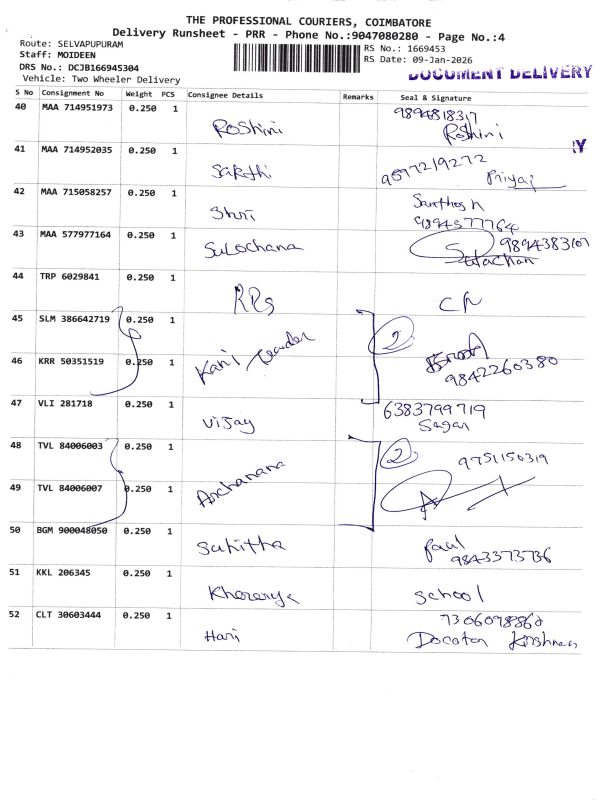 THE PROFESSIONAL COURIERS, COIMBATORE
Delivery Runsheet - PRR - Phone No.:9047080280 - Page No.:4
Route: SELVAPUPURAM
Staff: MOIDEEN
DRS No.: DCJB166945304
Vehicle: Two Wheeler Delivery
RS No.: 1669453
RS Date: 09-Jan-2026
DOCUMENT DELIVERY
S No Consignment No Weight PCS Consignee Details Remarks Seal & Signature
40 MAA 714951973 0.250 1 Roshini 9894818317 Roshini
41 MAA 714952035 0.250 1 Sakthi 9597219272 Priyaj
42 MAA 715058257 0.250 1 Shri Santhosh 9894577764
43 MAA 577977164 0.250 1 Sulochana 9894383107
44 TRP 6029841 0.250 1 RPs
45 SLM 386642719 0.250 1 Kani Leader 2
46 KRR 50351519 0.250 1 9842260380
47 VLI 281718 0.250 1 Vijay 6383799719 Sagar
48 TVL 84006003 0.250 1 Archanana 2 9751150319
49 TVL 84006007 0.250 1
50 BGM 900048050 0.250 1 Sahitha Paul 9843373736
51 KKL 206345 0.250 1 school
52 CLT 30603444 0.250 1 Hari